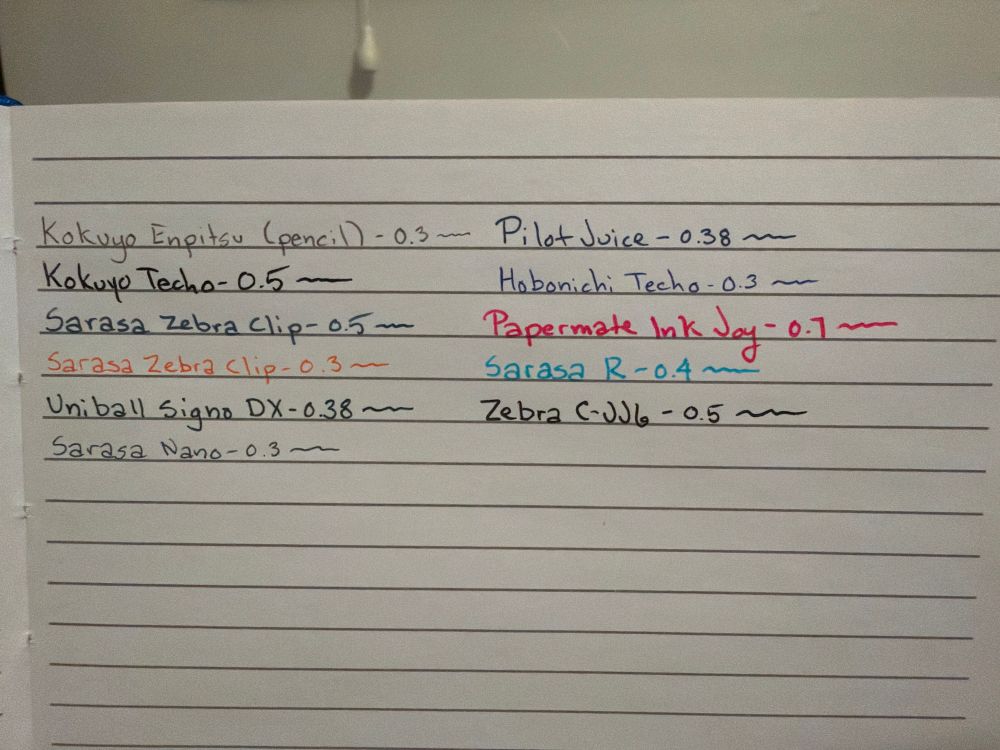 Kokuyo Enpitsu (pencil) - 0.3
Kokuyo Techo - 0.5
Sarasa Zebra Clip - 0.5
Sarasa Zebra Clip - 0.3
Uniball Signo DX - 0.38
Sarasa Nano - 0.3
Pilot Juice - 0.38
Hobonichi Techo - 0.3
Papermate Ink Joy - 0.7
Sarasa R - 0.4
Zebra C-JJ6 - 0.5